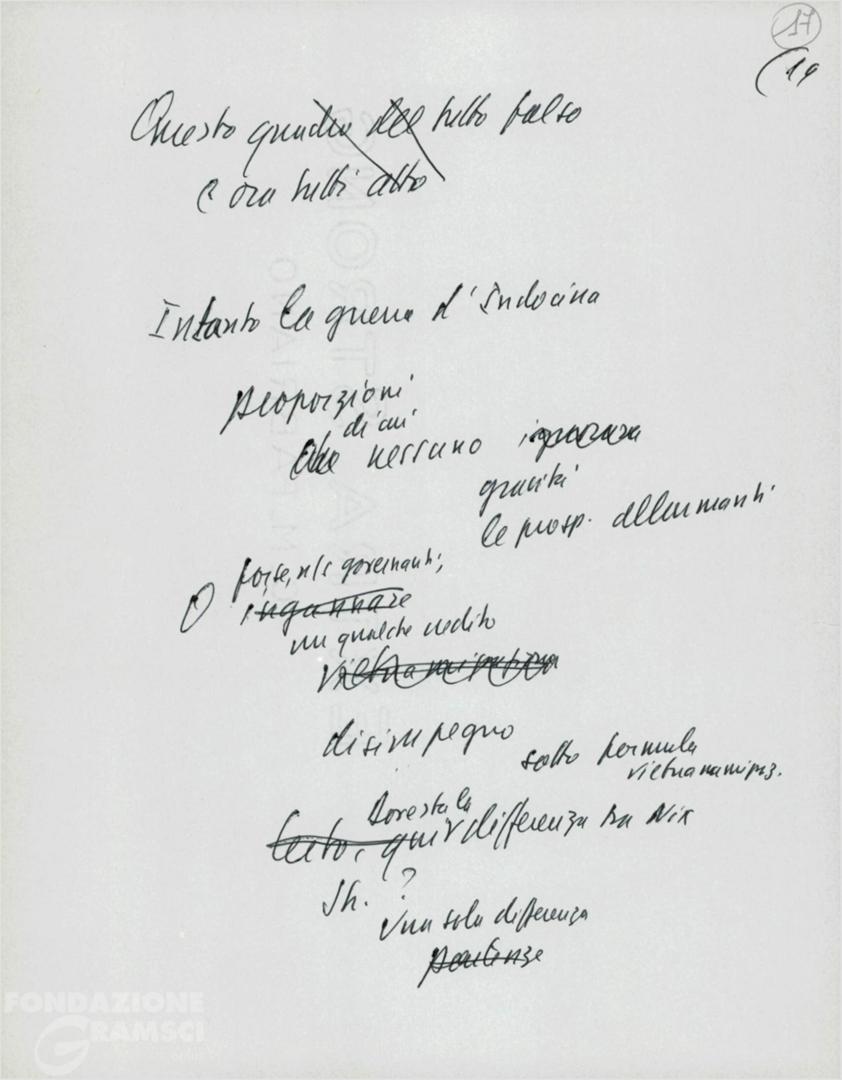 17
(19
Questo quadro del tutto falso
e ora tutti altro
Intanto la guerra d'Indocina
proporzioni
di cui
che nessuno ignoranza
gravità
le prosp. allarmanti
forse, n/s governanti,
O ingannare
un qualche credito
disimpegno
sotto formula
vietnamizz.
Dove sta la
certo, qui differenza tra Nix
Jh. ?
una sola differenza
FONDAZIONE
GRAMSCI